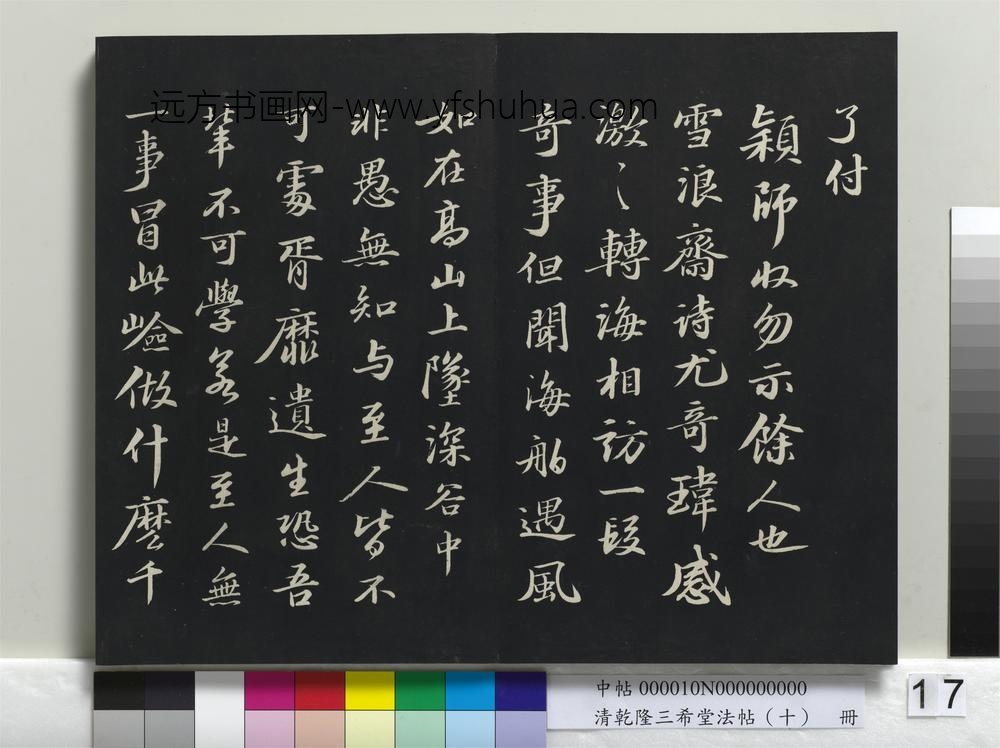 了付
穎師收勿示餘人也
雪浪齋诗尤奇瑋感
激〻轉海相訪一段
奇事但聞海舶遇風
如在高山上墜深谷中
非愚無知与至人皆不
可處胥靡遺生恐吾
輩不可學若是至人無
一事冒此嶮做什麽千
远方书画网-www.yfshuhua.com
中帖 000010N000000000
清乾隆三希堂法帖（十） 冊
17